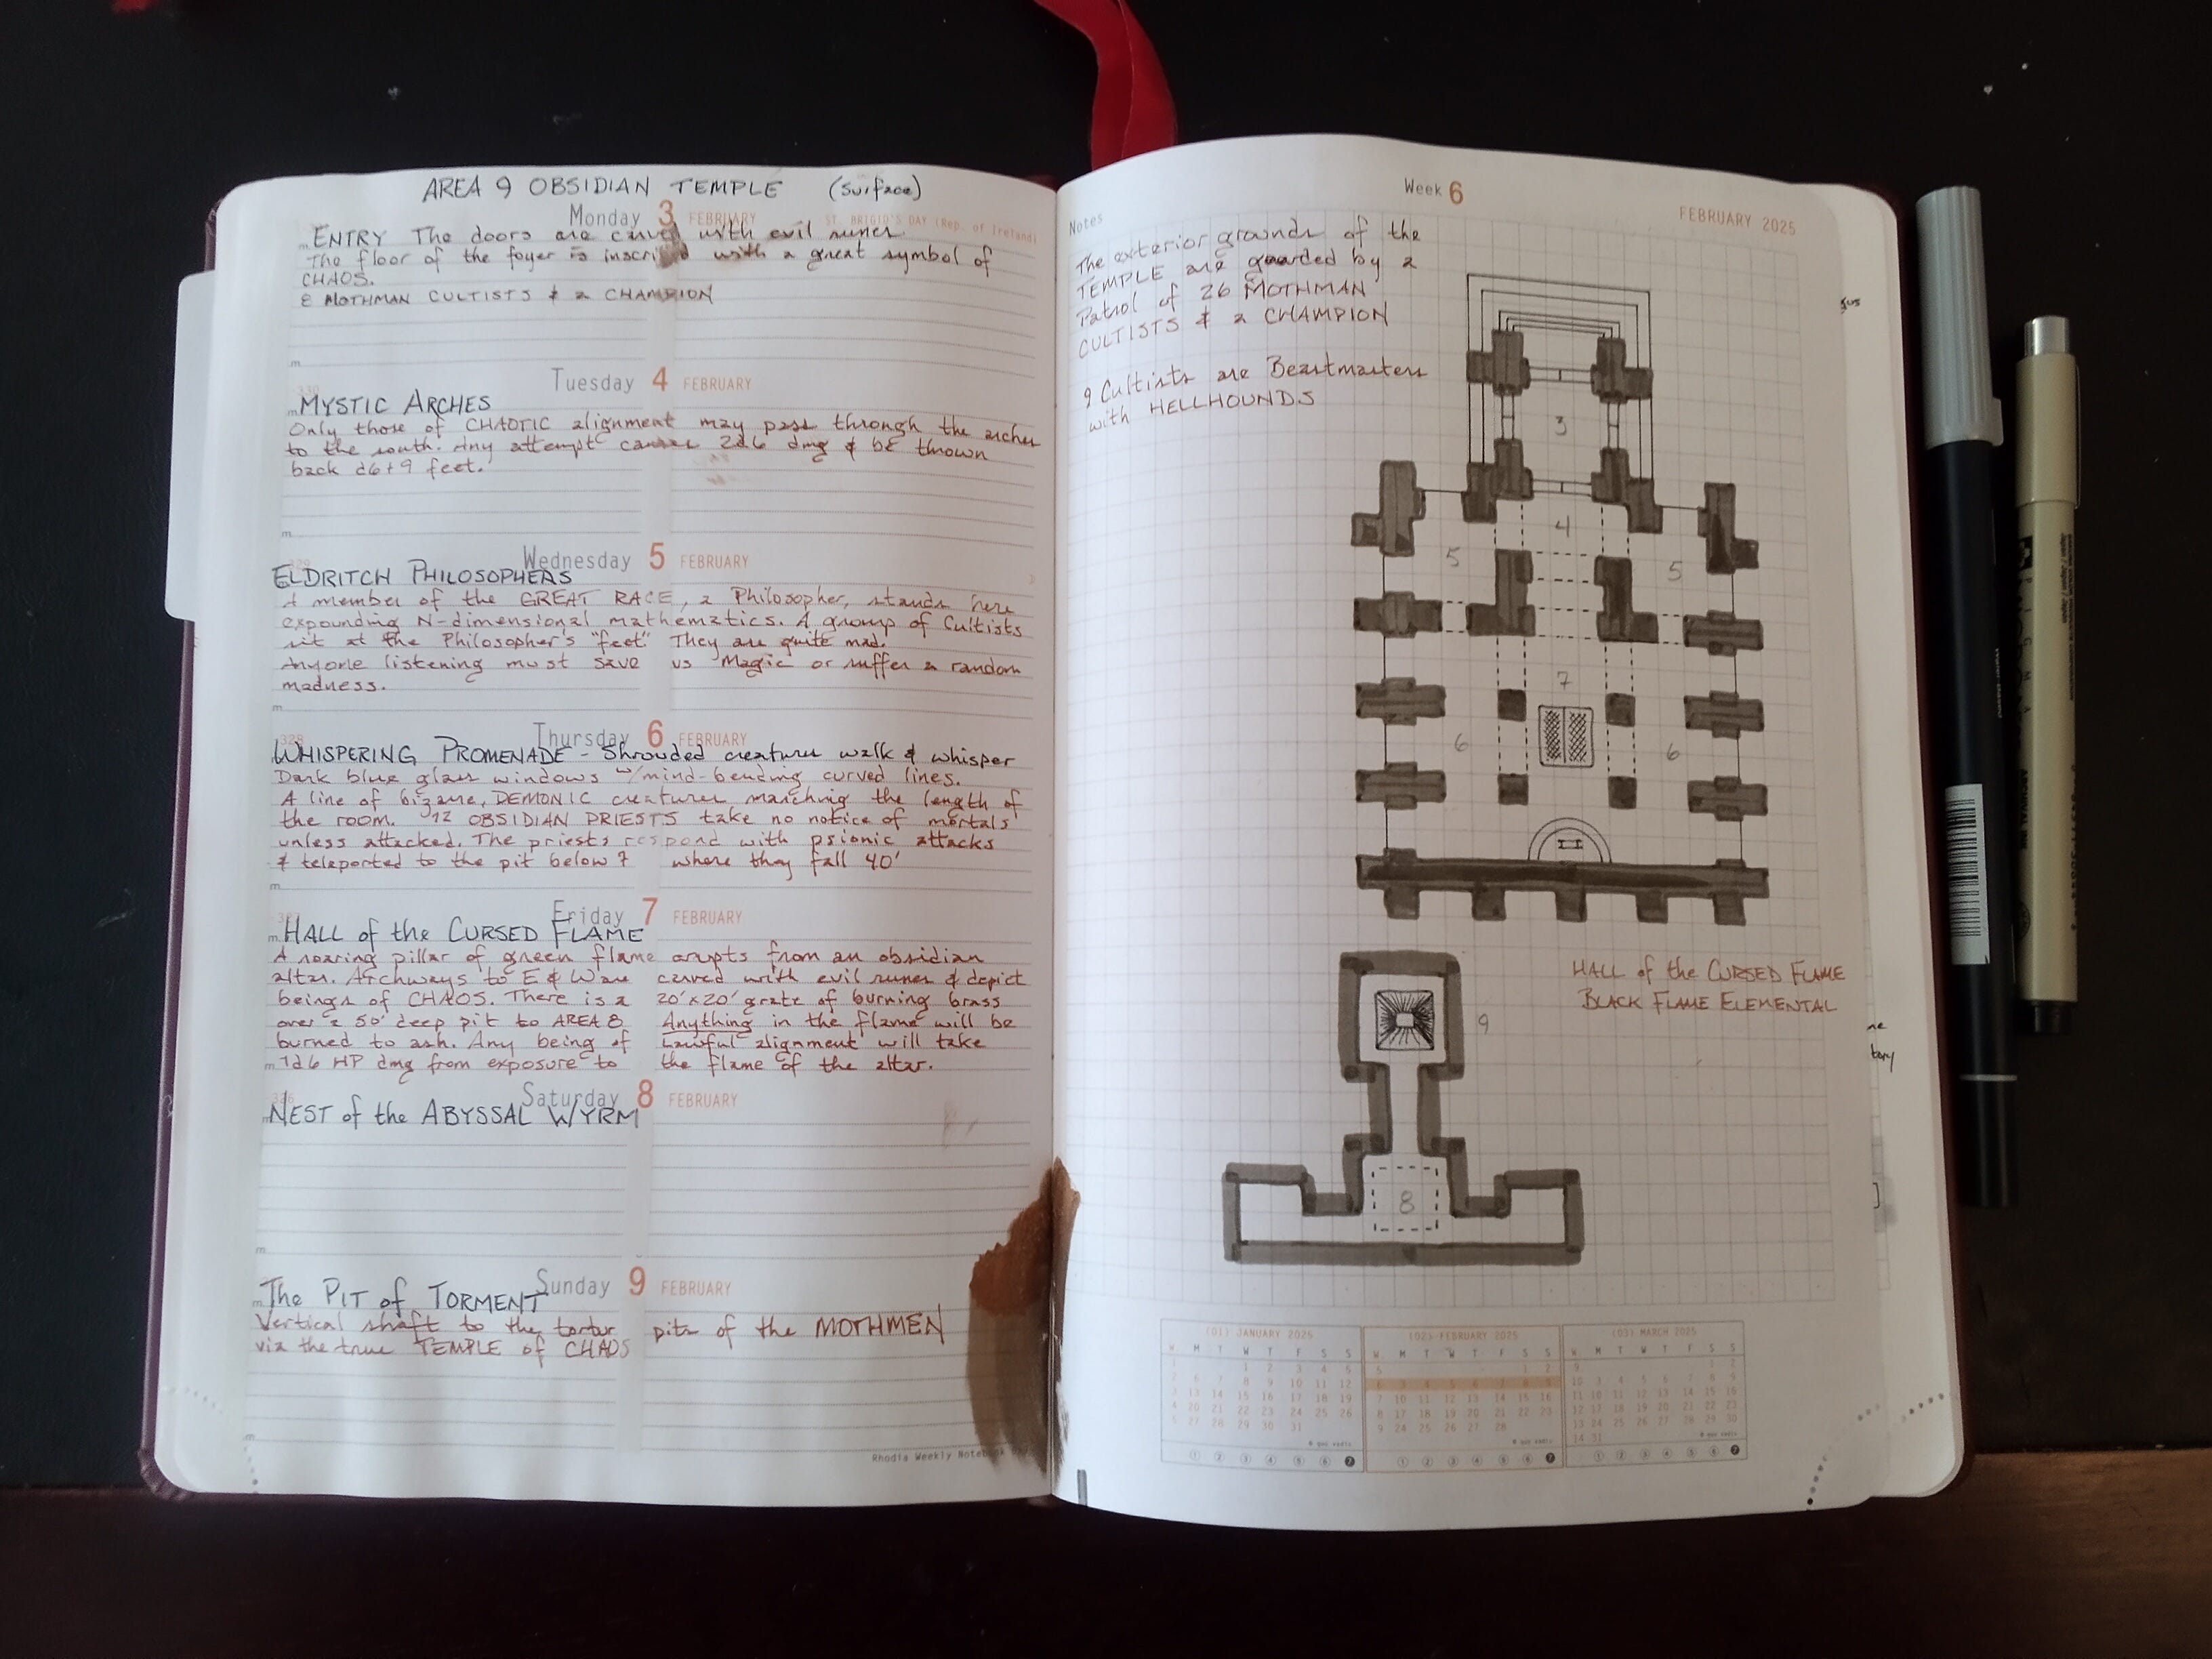 AREA 9 OBSIDIAN TEMPLE (Surface)
Monday 3 FEBRUARY ST. BRIGID'S DAY (Rep. of Ireland)
ENTRY The doors are carved with evil runes.
The floor of the foyer is inscribed with a great symbol of
CHAOS.
8 MOTHMAN CULTISTS & a CHAMPION
Tuesday 4 FEBRUARY
MYSTIC ARCHES
Only those of CHAOTIC alignment may pass through the arches
to the south. Any attempt causes 2d6 dmg & be thrown
back d6+9 feet.
Wednesday 5 FEBRUARY
ELDRITCH PHILOSOPHERS
A member of the GREAT RACE, a Philosopher, stands here
expounding N-dimensional mathematics. A group of Cultists
sit at the Philosopher's "feet." They are quite mad.
Anyone listening must save vs Magic or suffer a random
madness.
Thursday 6 FEBRUARY
WHISPERING PROMENADE - Shrouded creatures walk & whisper
Dark blue glass windows w/mind-bending curved lines.
A line of bizarre, DEMONIC creatures marching the length of
the room. 12 OBSIDIAN PRIESTS take no notice of mortals
unless attacked. The priests respond with psionic attacks
& teleported to the pit below 7 where they fall 40'
Friday 7 FEBRUARY
HALL of the CURSED FLAME
A roaring pillar of green flame erupts from an obsidian
altar. Archways to E & W are carved with evil runes & depict
beings of CHAOS. There is a 20'x20' grate of burning brass
over a 50' deep pit to AREA 8 Anything in the flame will be
burned to ash. Any being of Lawful alignment will take
1d6 HP dmg from exposure to the flame of the altar.
Saturday 8 FEBRUARY
NEST of the ABYSSAL WYRM
Sunday 9 FEBRUARY
The PIT of TORMENT
Vertical shaft to the tortur pits of the MOTHMEN
via the true TEMPLE of CHAOS
Rhodia Weekly
Week 6
Notes
FEBRUARY 2025
The exterior grounds of the
TEMPLE are guarded by a
Patrol of 26 MOTHMAN
CULTISTS & a CHAMPION
9 Cultists are Beastmasters
with HELLHOUNDS
3
4
5 5
7
6 6
HALL of the CURSED FLAME
BLACK FLAME ELEMENTAL
9
8
(01) JANUARY 2025
(02) FEBRUARY 2025
(03) MARCH 2025